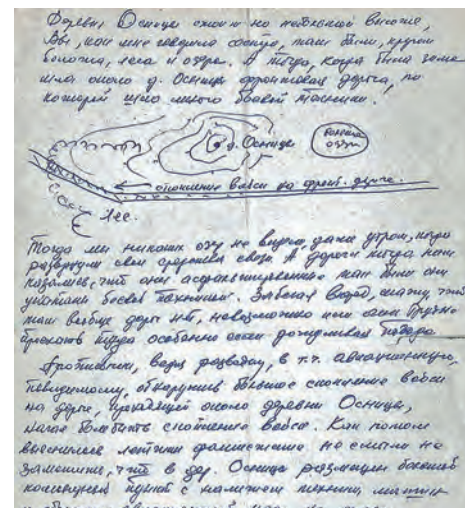 Деревня Осница стоит на небольшой высоте,
Вы, как мне говорила сестра, там были, кругом
болота, леса и озера. А тогда, когда была зима
шла около д. Осница фронтовая дорога, по
которой шло много боевой техники.
д. Осница
озеро
скопление войск на фронт. дороге.
Лес.
Тогда мы никаких озер не видели, даже утром, когда
развернули свои средства связи. А дороги тогда нам
казались, что они асфальтированные там были они
укатаны боевой техникой. Забегая вперед, скажу, что
там вообще дорог нет, невозможно или очень трудно
проехать туда особенно если дождливая погода.
Противник, ведя разведку, в т.ч. авиационную,
по-видимому, обнаружив большое скопление войск
на дороге, проходящей около деревни Осница,
начал бомбить скопление войск. Как потом
выяснилось летчики фашистские не смогли не
заметить, что в дер. Осница размещен большой
командный пункт с наличием техники,